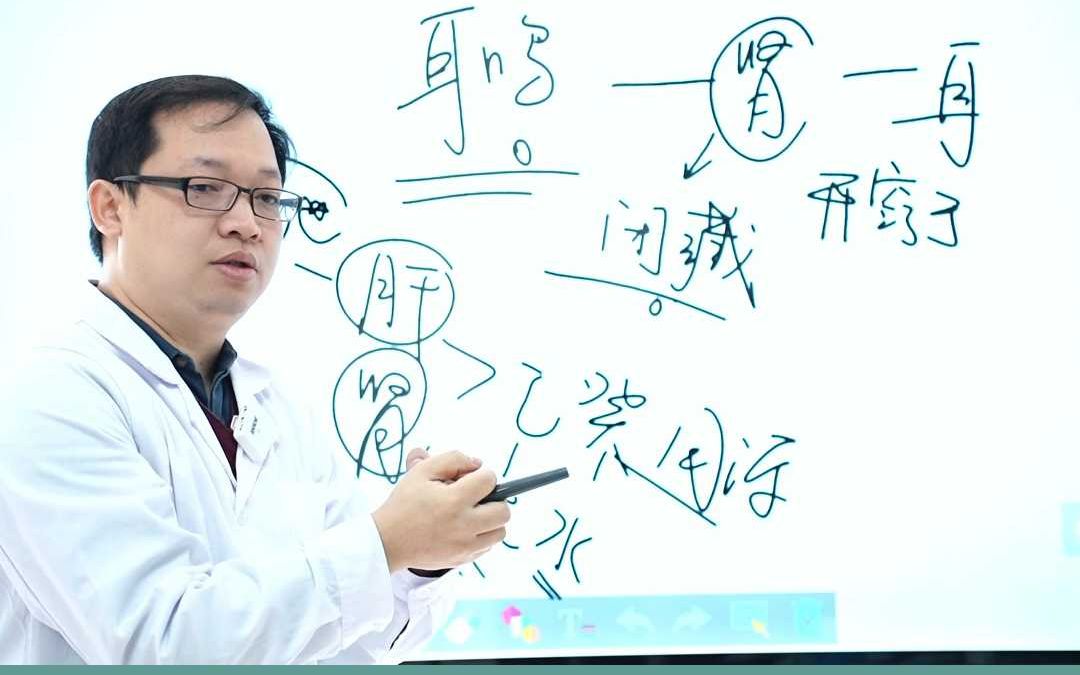 耳鸣 — 肾 — 耳
闭藏 开窍于
肝
肾 > 乙癸同源
水